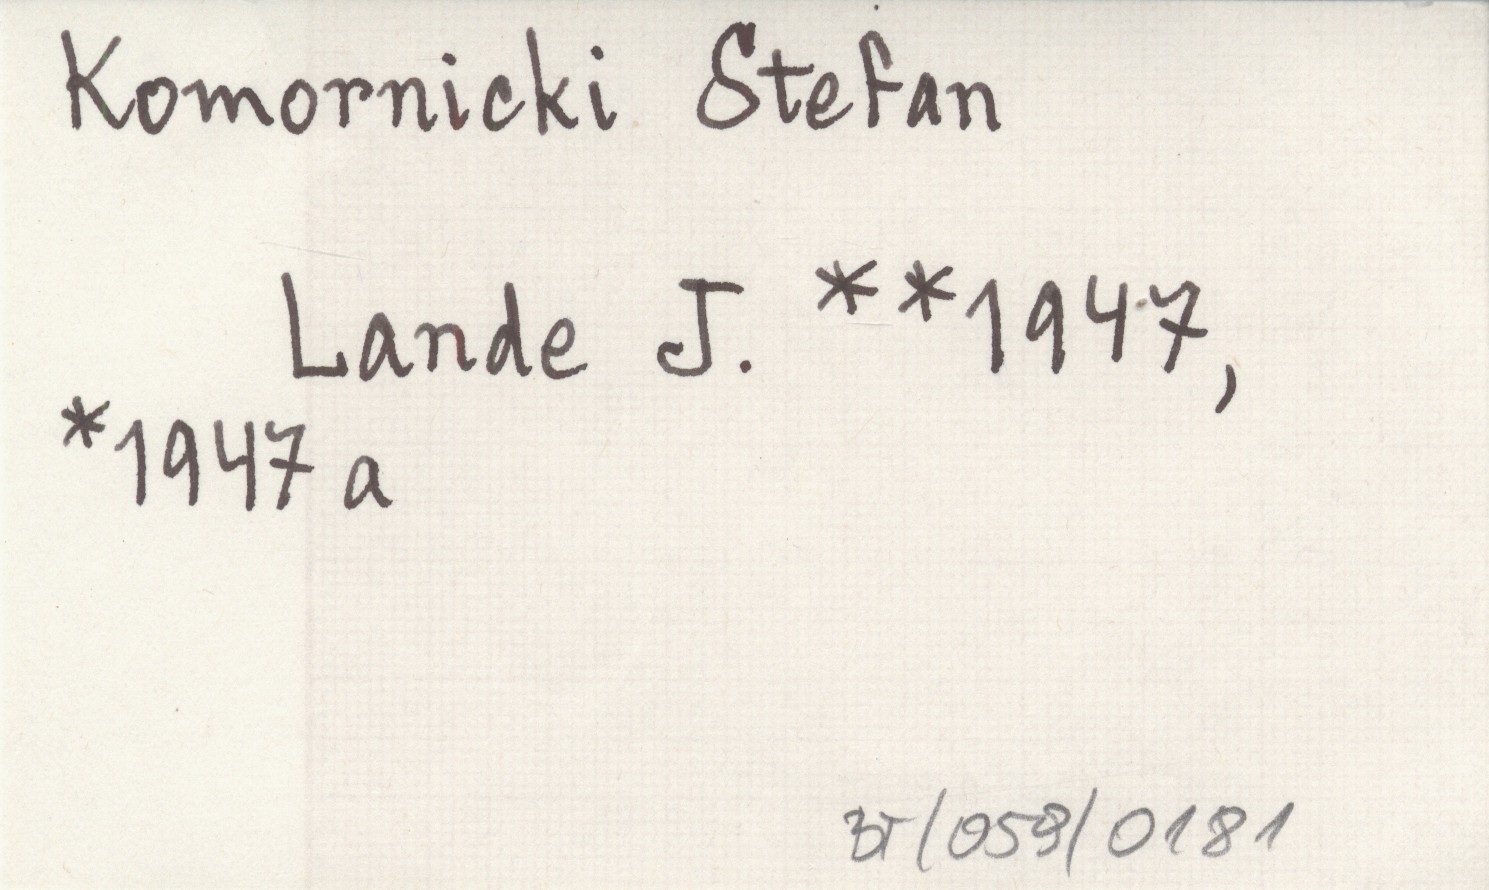 Komornicki Stefan
Lande J. **1947,
*1947 a
BT/059/0181